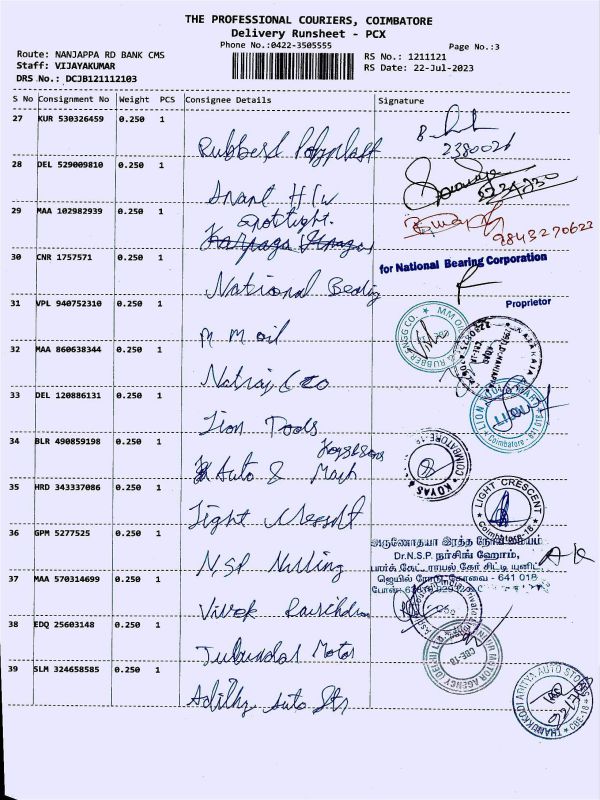 THE PROFESSIONAL COURIERS, COIMBATORE
Delivery Runsheet - PCX
Phone No.:0422-3505555
Page No.:3
Route: NANJAPPA RD BANK CMS
Staff: VIJAYAKUMAR
DRS No.: DCJB121112103
RS No.: 1211121
RS Date: 22-Jul-2023
S No Consignment No Weight PCS Consignee Details Signature
27 KUR 530326459 0.250 1
Rubbers Polyplast
2380021
28 DEL 529009810 0.250 1
Anant H/w
29 MAA 102982939 0.250 1
Spotlight.
9843270623
30 CNR 1757571 0.250 1
National Bearing
for National Bearing Corporation
Proprietor
31 VPL 940752310 0.250 1
M M oil
32 MAA 860638344 0.250 1
Natraj &co
33 DEL 120886131 0.250 1
Lion Tools
Coimbatore - 641 018
34 BLR 490859198 0.250 1
Auto & Mach
KOYAS
COIMBATORE-18
35 HRD 343337086 0.250 1
Light
LIGHT CRESCENT
Coimbatore-18
36 GPM 5277525 0.250 1
N.S.P Nursing
அருணோதயா இரத்த
Dr.N.S.P. நர்சிங் ஹோம்,
பார்க் கேட், ராயல் கேர் சிட்டி யூனிட்,
ஜெயில் ரோடு, கோவை - 641 018
37 MAA 570314699 0.250 1
Vivek
38 EDQ 25603148 0.250 1
Motor
MOTOR AGENCY
CBE-18
39 SLM 324658585 0.250 1
Adithy Auto Strs
ADITYA AUTO STORES
CBE-18